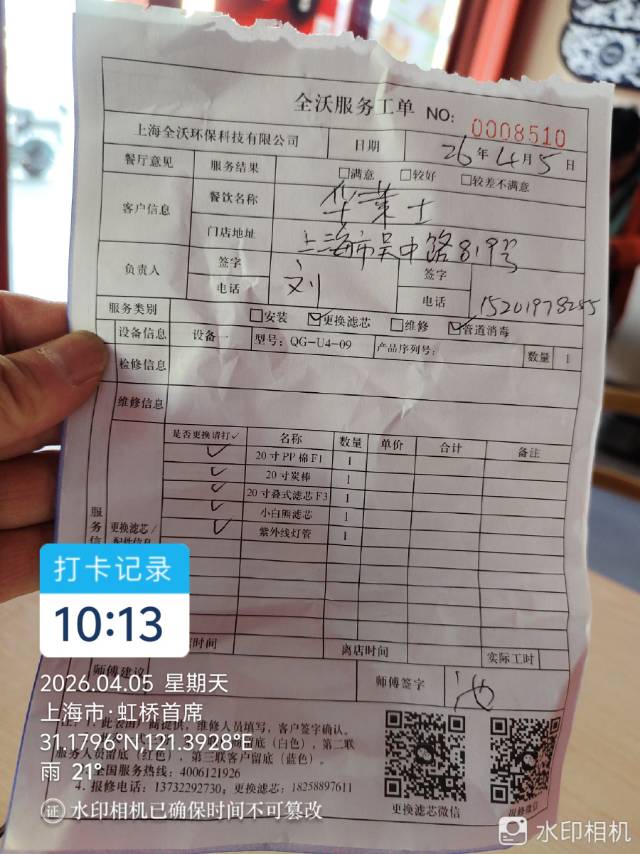 全沃服务工单 NO: 0008510
上海全沃环保科技有限公司 日期 26年4月5日
餐厅意见 服务结果 □满意 □较好 □较差不满意
客户信息 餐饮名称 华莱士
门店地址 上海市吴中路819号
负责人 签字 刘 签字
电话 电话 15201978285
服务类别 □安装 ☑更换滤芯 □维修 ☑管道消毒
设备信息 设备一 型号: QG-U4-09 产品序列号: 数量 1
检修信息
维修信息
是否更换请打✓ 名称 数量 单价 合计 备注
✓ 20寸PP棉F1 1
✓ 20寸炭棒 1
✓ 20寸叠式滤芯F3 1
✓ 小白熊滤芯 1
✓ 紫外线灯管 1
服务信
更换滤芯/
配件信息
打卡记录
10:13
时间 离店时间 实际工时
师傅建议 师傅签字
2026.04.05 星期天
上海市·虹桥首席
31.1796°N,121.3928°E
雨 21°
提供,维修人员填写,客户签字确认。
底(白色),第二联
服务人员留底(红色),第三联客户留底(蓝色)。
全国服务热线: 4006121926
4. 报修电话: 13732292730; 更换滤芯: 18258897611
更换滤芯微信 报修微信
证 水印相机已确保时间不可篡改
水印相机